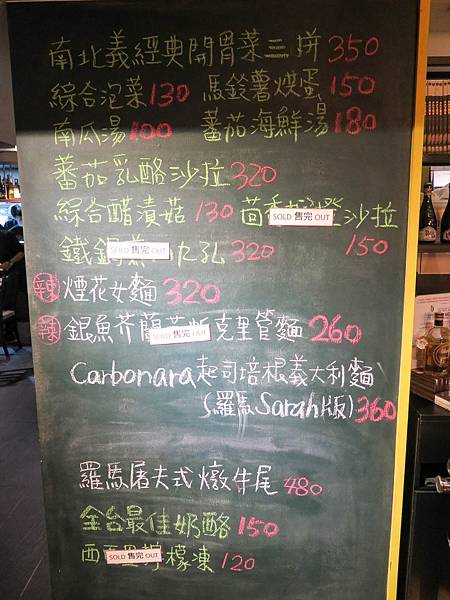 南北義經典開胃菜三拼350
綜合泡菜130 馬鈴薯烘蛋150
南瓜湯100 蕃茄海鮮湯180
蕃茄乳酪沙拉320
綜合醋漬菇130 茴香 SOLD 售完 OUT 沙拉
鐵鍋 SOLD 售完 OUT 九孔320 150
辣 煙花女麵320
辣 銀魚芥蘭 SOLD 售完 OUT 克里管麵260
Carbonara起司培根義大利麵
(羅馬Sarah版)360
羅馬屠夫式燉牛尾480
全台最佳奶酪150
西 SOLD 售完 OUT 檸檬凍120